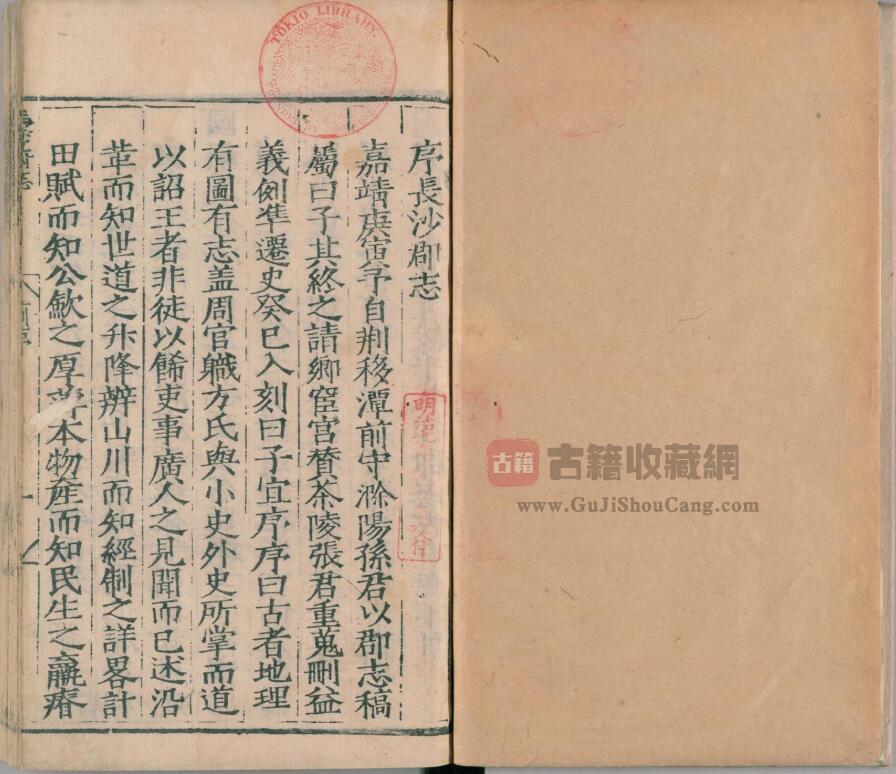 序長沙郡志
嘉靖庚寅予自荆移潭前守滁陽孫君以郡志稿
屬曰子其終之請鄉宦宫賛茶陵張君重蒐刪益
義例凖遷史癸巳入刻曰子宜序序曰古者地理
有圖有志盖周官職方氏與小史外史所掌而道
以詔王者非徒以餙吏事廣人之見聞而已述沿
革而知世道之升降辨山川而知經制之詳畧計
田賦而知公歛之厚薄本物産而知民生之羸瘠
TOKIO LIBRARY
古籍
古籍收藏網
www.GuJiShouCang.com